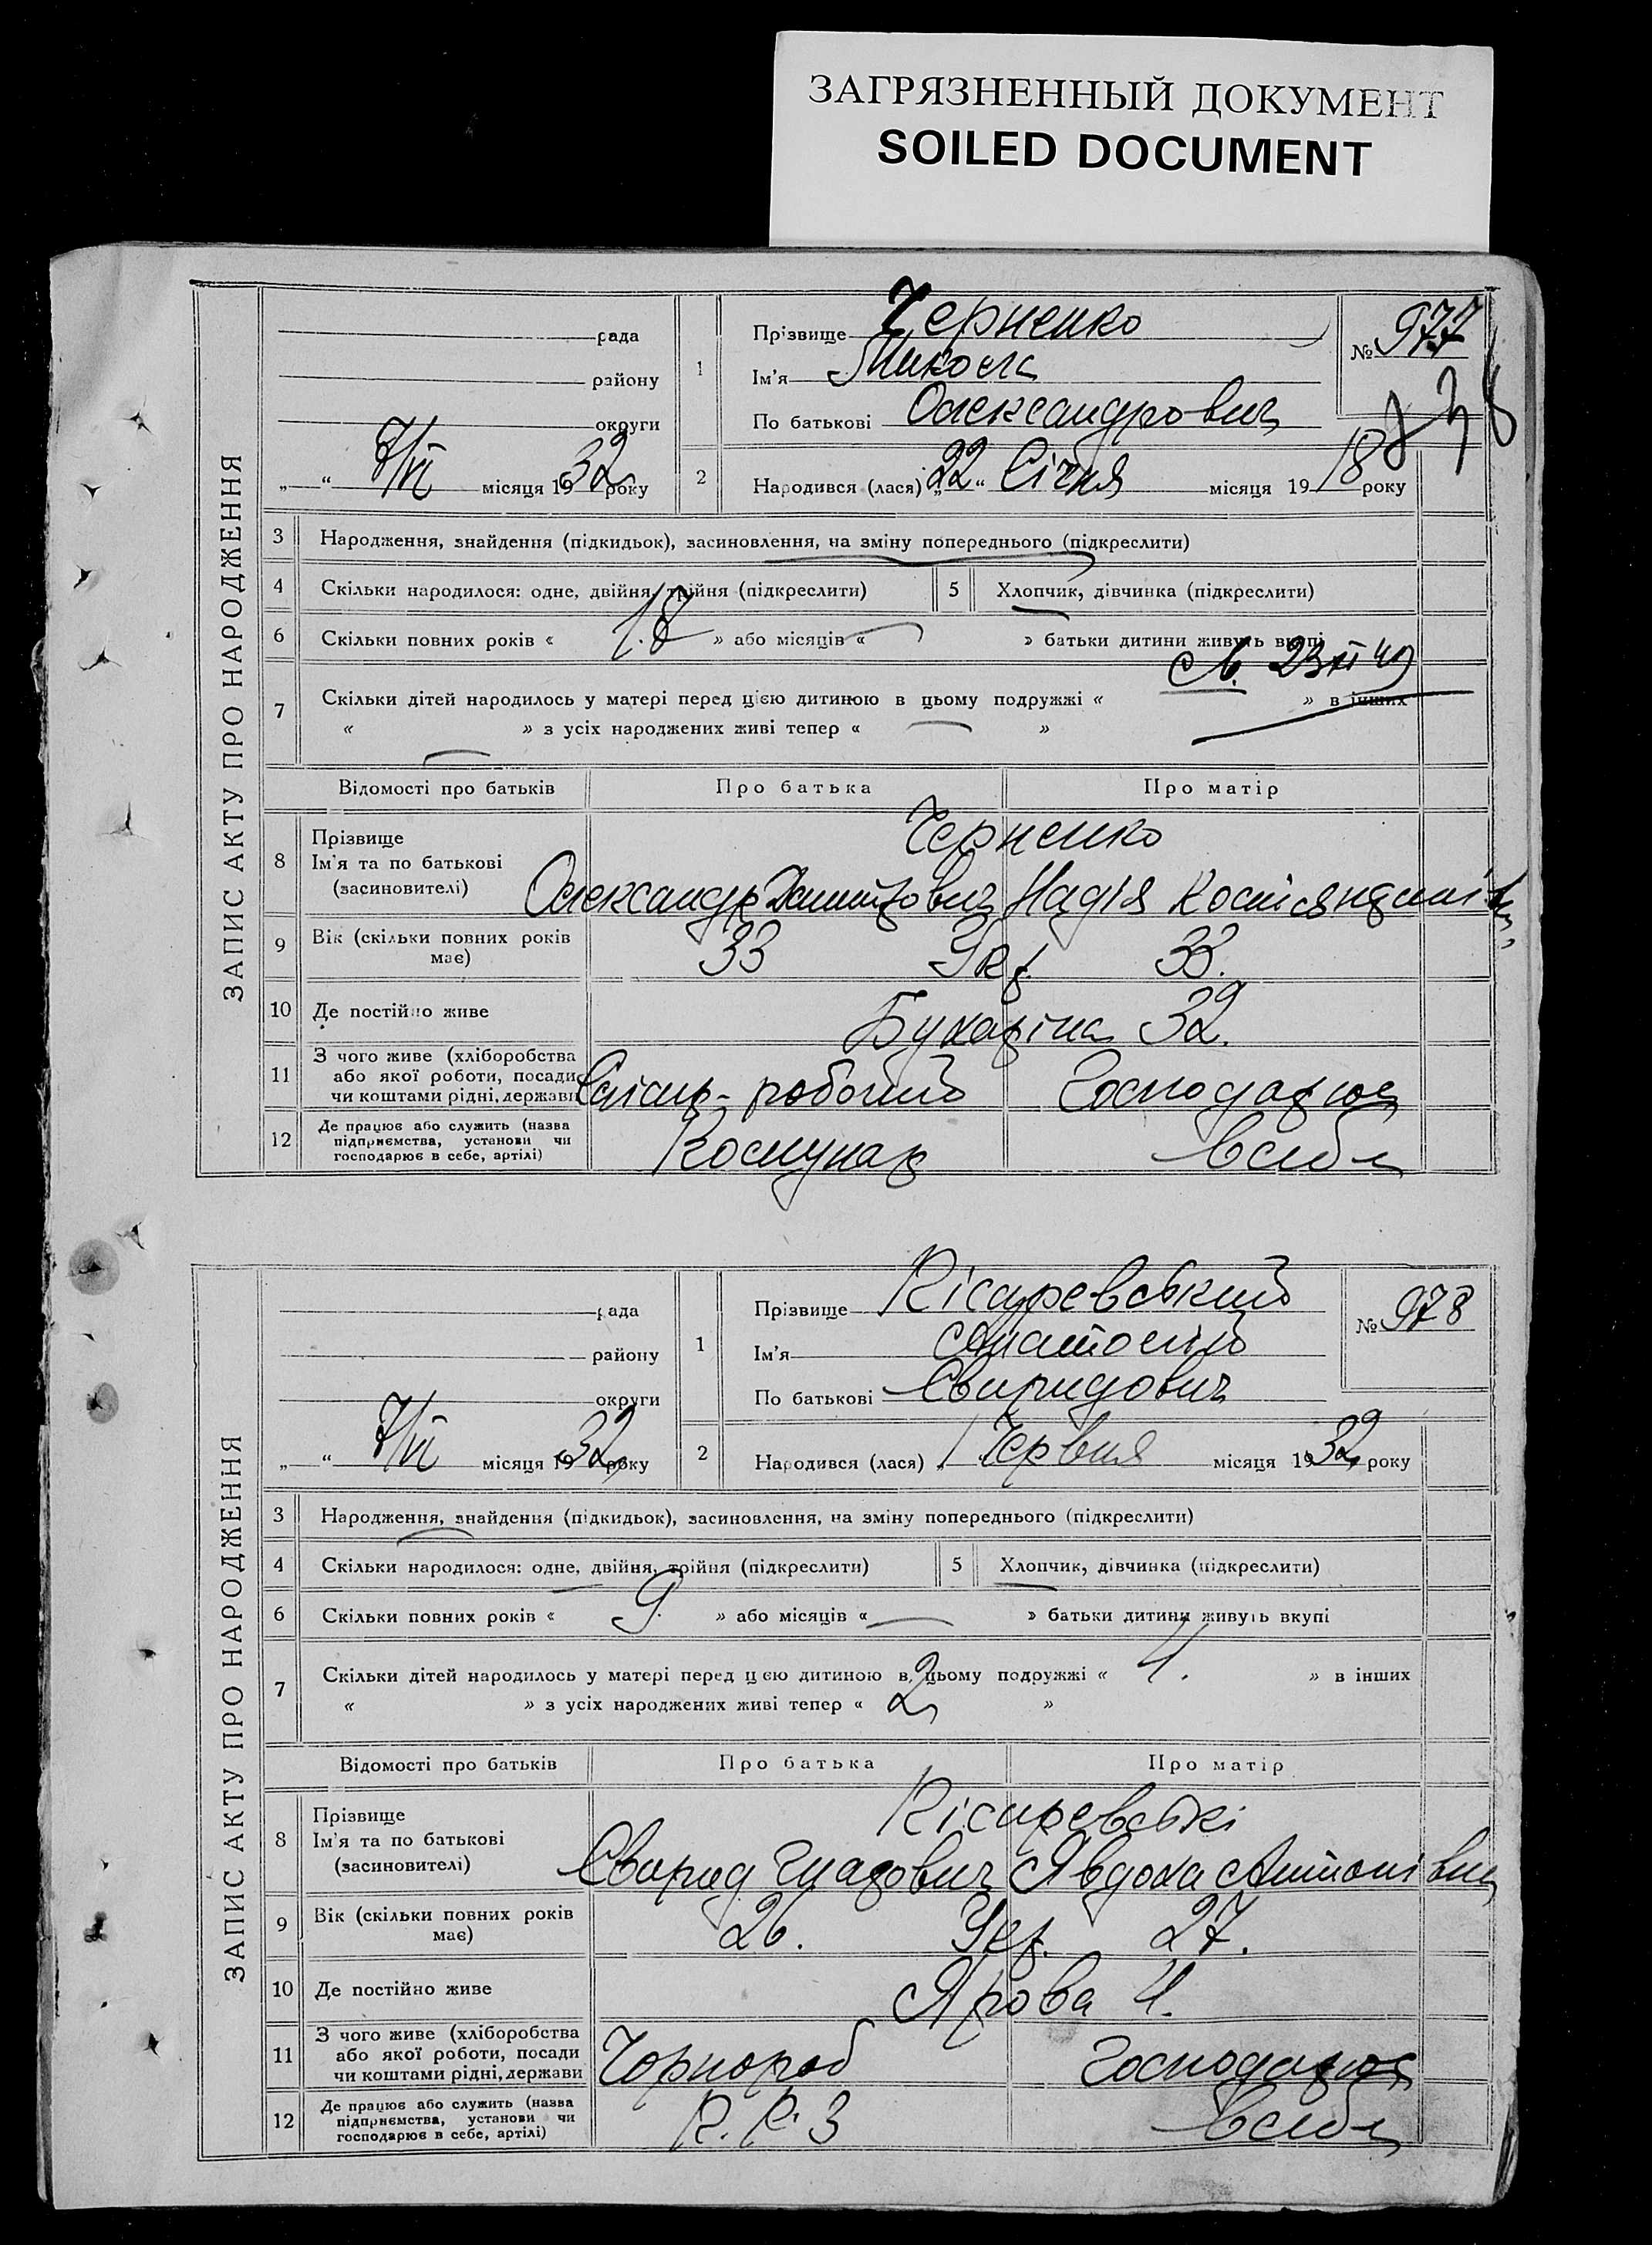 ЗАГРЯЗНЕННЫЙ ДОКУМЕНТ
SOILED DOCUMENT
ЗАПИС АКТУ ПРО НАРОДЖЕННЯ
рада
району
округи
„ “ 7/VI місяця 1932 року
1
Прізвище Черненко
Ім'я Микола
По батькові Олександрович
№ 977
2
Народився (лася) „22“ Січня місяця 1918 року
3 Народження, знайдення (підкидьок), засиновлення, на зміну попереднього (підкреслити)
4 Скільки народилося: одне, двійня, трійня (підкреслити) 5 Хлопчик, дівчинка (підкреслити)
6 Скільки повних років « 18 » або місяців « » батьки дитини живуть вкупі
7 Скільки дітей народилось у матері перед цією дитиною в цьому подружжі « » в інших
« » з усіх народжених живі тепер « »
Відомості про батьків Про батька Про матір
8 Прізвище Черненко
Ім'я та по батькові
(засновителі) Олександр Надія
9 Вік (скільки повних років має) 33 Укр. 33.
10 Де постійно живе Бухаріна 32.
11 З чого живе (хліборобства
або якої роботи, посади
чи коштами рідні, держави Слісар-робочий Господарює
12 Де працює або служить (назва
підприємства, установи чи
господарює в себе, артілі) Комунар в себе
ЗАПИС АКТУ ПРО НАРОДЖЕННЯ
рада
району
округи
„ “ 7/VI місяця 1932 року
1
Прізвище Кісаревський
Ім'я Анатолій
По батькові Свиридович
№ 978
2
Народився (лася) „ 1 Червня місяця 1932 року
3 Народження, знайдення (підкидьок), засиновлення, на зміну попереднього (підкреслити)
4 Скільки народилося: одне, двійня, трійня (підкреслити) 5 Хлопчик, дівчинка (підкреслити)
6 Скільки повних років « 9. » або місяців « » батьки дитини живуть вкупі
7 Скільки дітей народилось у матері перед цією дитиною в цьому подружжі « 1. » в інших
« » з усіх народжених живі тепер « 2 »
Відомості про батьків Про батька Про матір
8 Прізвище
Ім'я та по батькові
(засиновителі) Свирид Явдоха Антонівна
9 Вік (скільки повних років має) 26. Укр. 27.
10 Де постійно живе Ярова
11 З чого живе (хліборобства
або якої роботи, посади
чи коштами рідні, держави Чорнороб Господарює
12 Де працює або служить (назва
підприємства, установи чи
господарює в себе, артілі) в себе